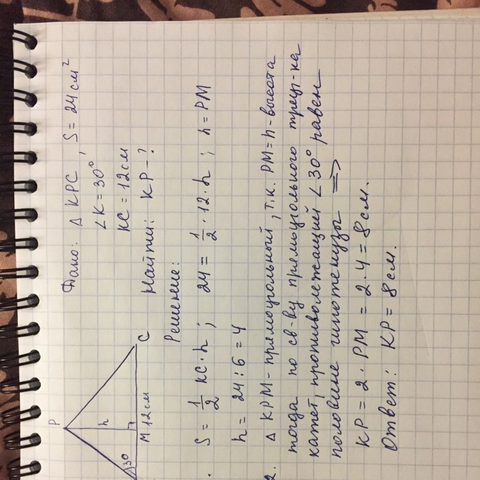 Дано: Δ KPC, S = 24 см²
∠K = 30°
KC = 12 см
Найти: KP – ?
Решение:
P
h
30
M 12 см
C
S = 1/2 KC · h ; 24 = 1/2 · 12 · h ; h = PM
h = 24 : 6 = 4
2. Δ KPM – прямоугольный, т.к. PM = h – высота
тогда по св-ву прямоугольного треуг-ка
катет, противолежащий ∠30° равен
половине гипотенузы =>
KP = 2 · PM = 2 · 4 = 8 см.
Ответ: KP = 8 см.